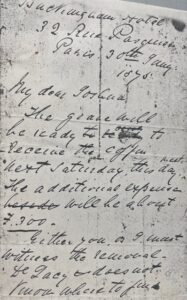 Buckingham Hotel
32 Rue Pasquier
Paris 30th Jany.
1875.
My dear Joshua
The Grave will
be ready to
receive the coffin
next Saturday this day
The additional expense
will be about
£300.
Either you, or I must
witness the removal.
De Pacy does not
know where to find